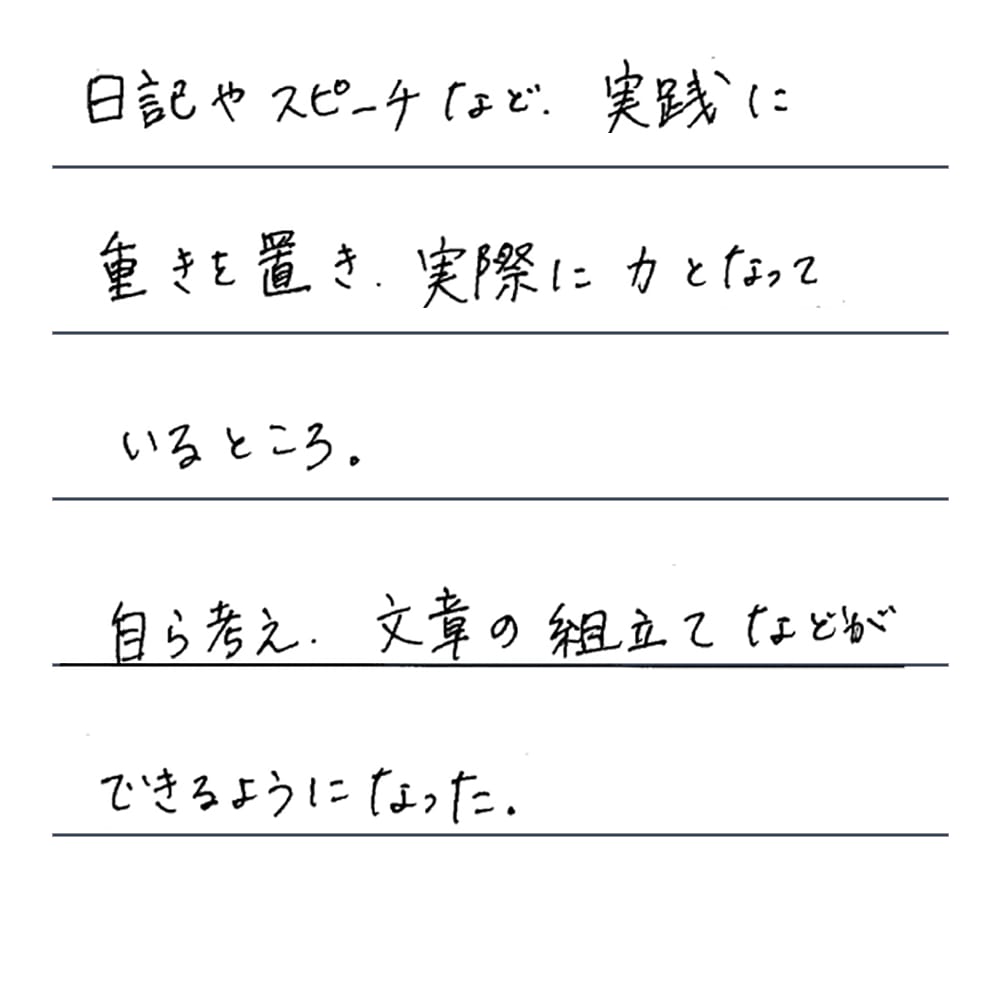 日記やスピーチなど、実践に
重きを置き、実際に力となって
いるところ。
自ら考え、文章の組立てなどが
できるようになった。